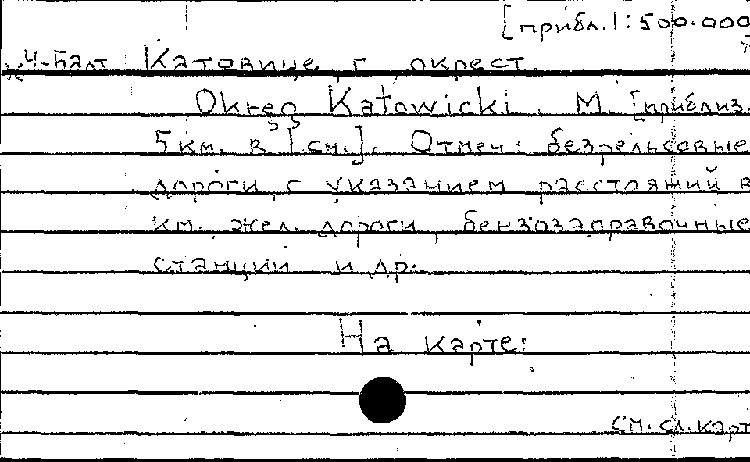 [прибл. 1:500.000
Ч-5алт Катовице, г. окрест.
Okręg Katowicki. М. [приблиз.
5 км. в 1 см.]. Отмеч: безрельсовые
дороги, с указанием расстояний в
км. жел. дороги, бензозаправочные
станции и др.
На карте:
см. сл. карт